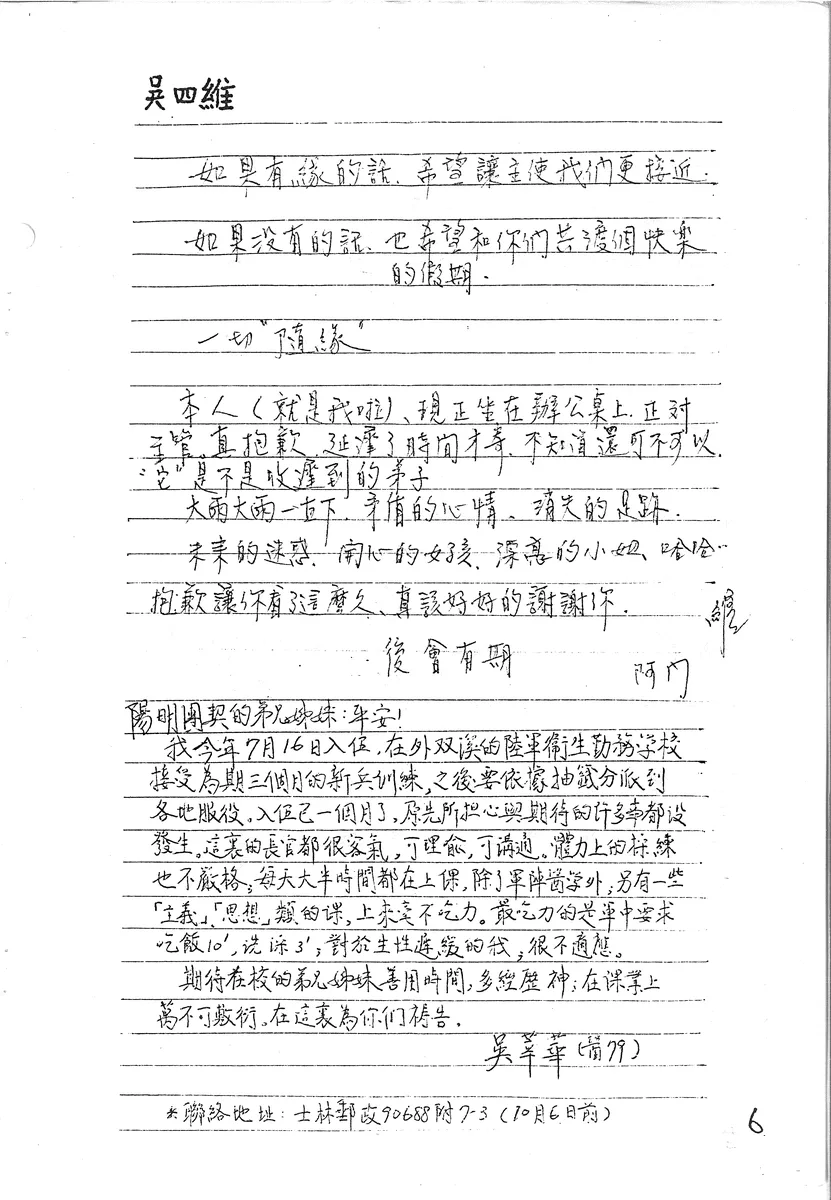 吳四維
如果有緣的話、希望讓主使我們更接近.
如果沒有的話、也希望和你們共渡個快樂
的假期.
一切"隨緣"
本人(就是我啦)、現正坐在辦公桌上.正对
主管.真抱歉.延遲了時間才寄.不知道還可不可以.
"它"是不是收遲到的弟子
大雨大雨一直下.矛盾的心情、消失的足跡.
未来的迷惑.開心的女孩.漂亮的小妞、哈哈…
抱歉讓你看了這麼久、真該好好的謝謝你.
維
後會有期
阿門
陽明團契的弟兄姊妹:平安!
我今年7月16日入伍,在外双溪的陸軍衛生勤務学校
接受為期三個月的新兵訓練,之後要依據抽籤分派到
各地服役。入伍已一個月了,原先所担心與期待的许多事都没
發生。這裏的長官都很客氣,可理喻,可溝通。體力上的操練
也不嚴格;每天大半時間都在上課,除了軍陣醫学外;另有一些
「主義」、「思想」類的课,上來亳不吃力。最吃力的是軍中要求
吃飯10',洗澡3';對於生性遲緩的我,很不適應。
期待在校的弟兄姊妹善用時間,多經歷神;在课業上
萬不可敷衍。在這裏為你们禱告.
吳萃華(醫79)
*聯絡地址:士林郵政90688附7-3(10月6日前)
6